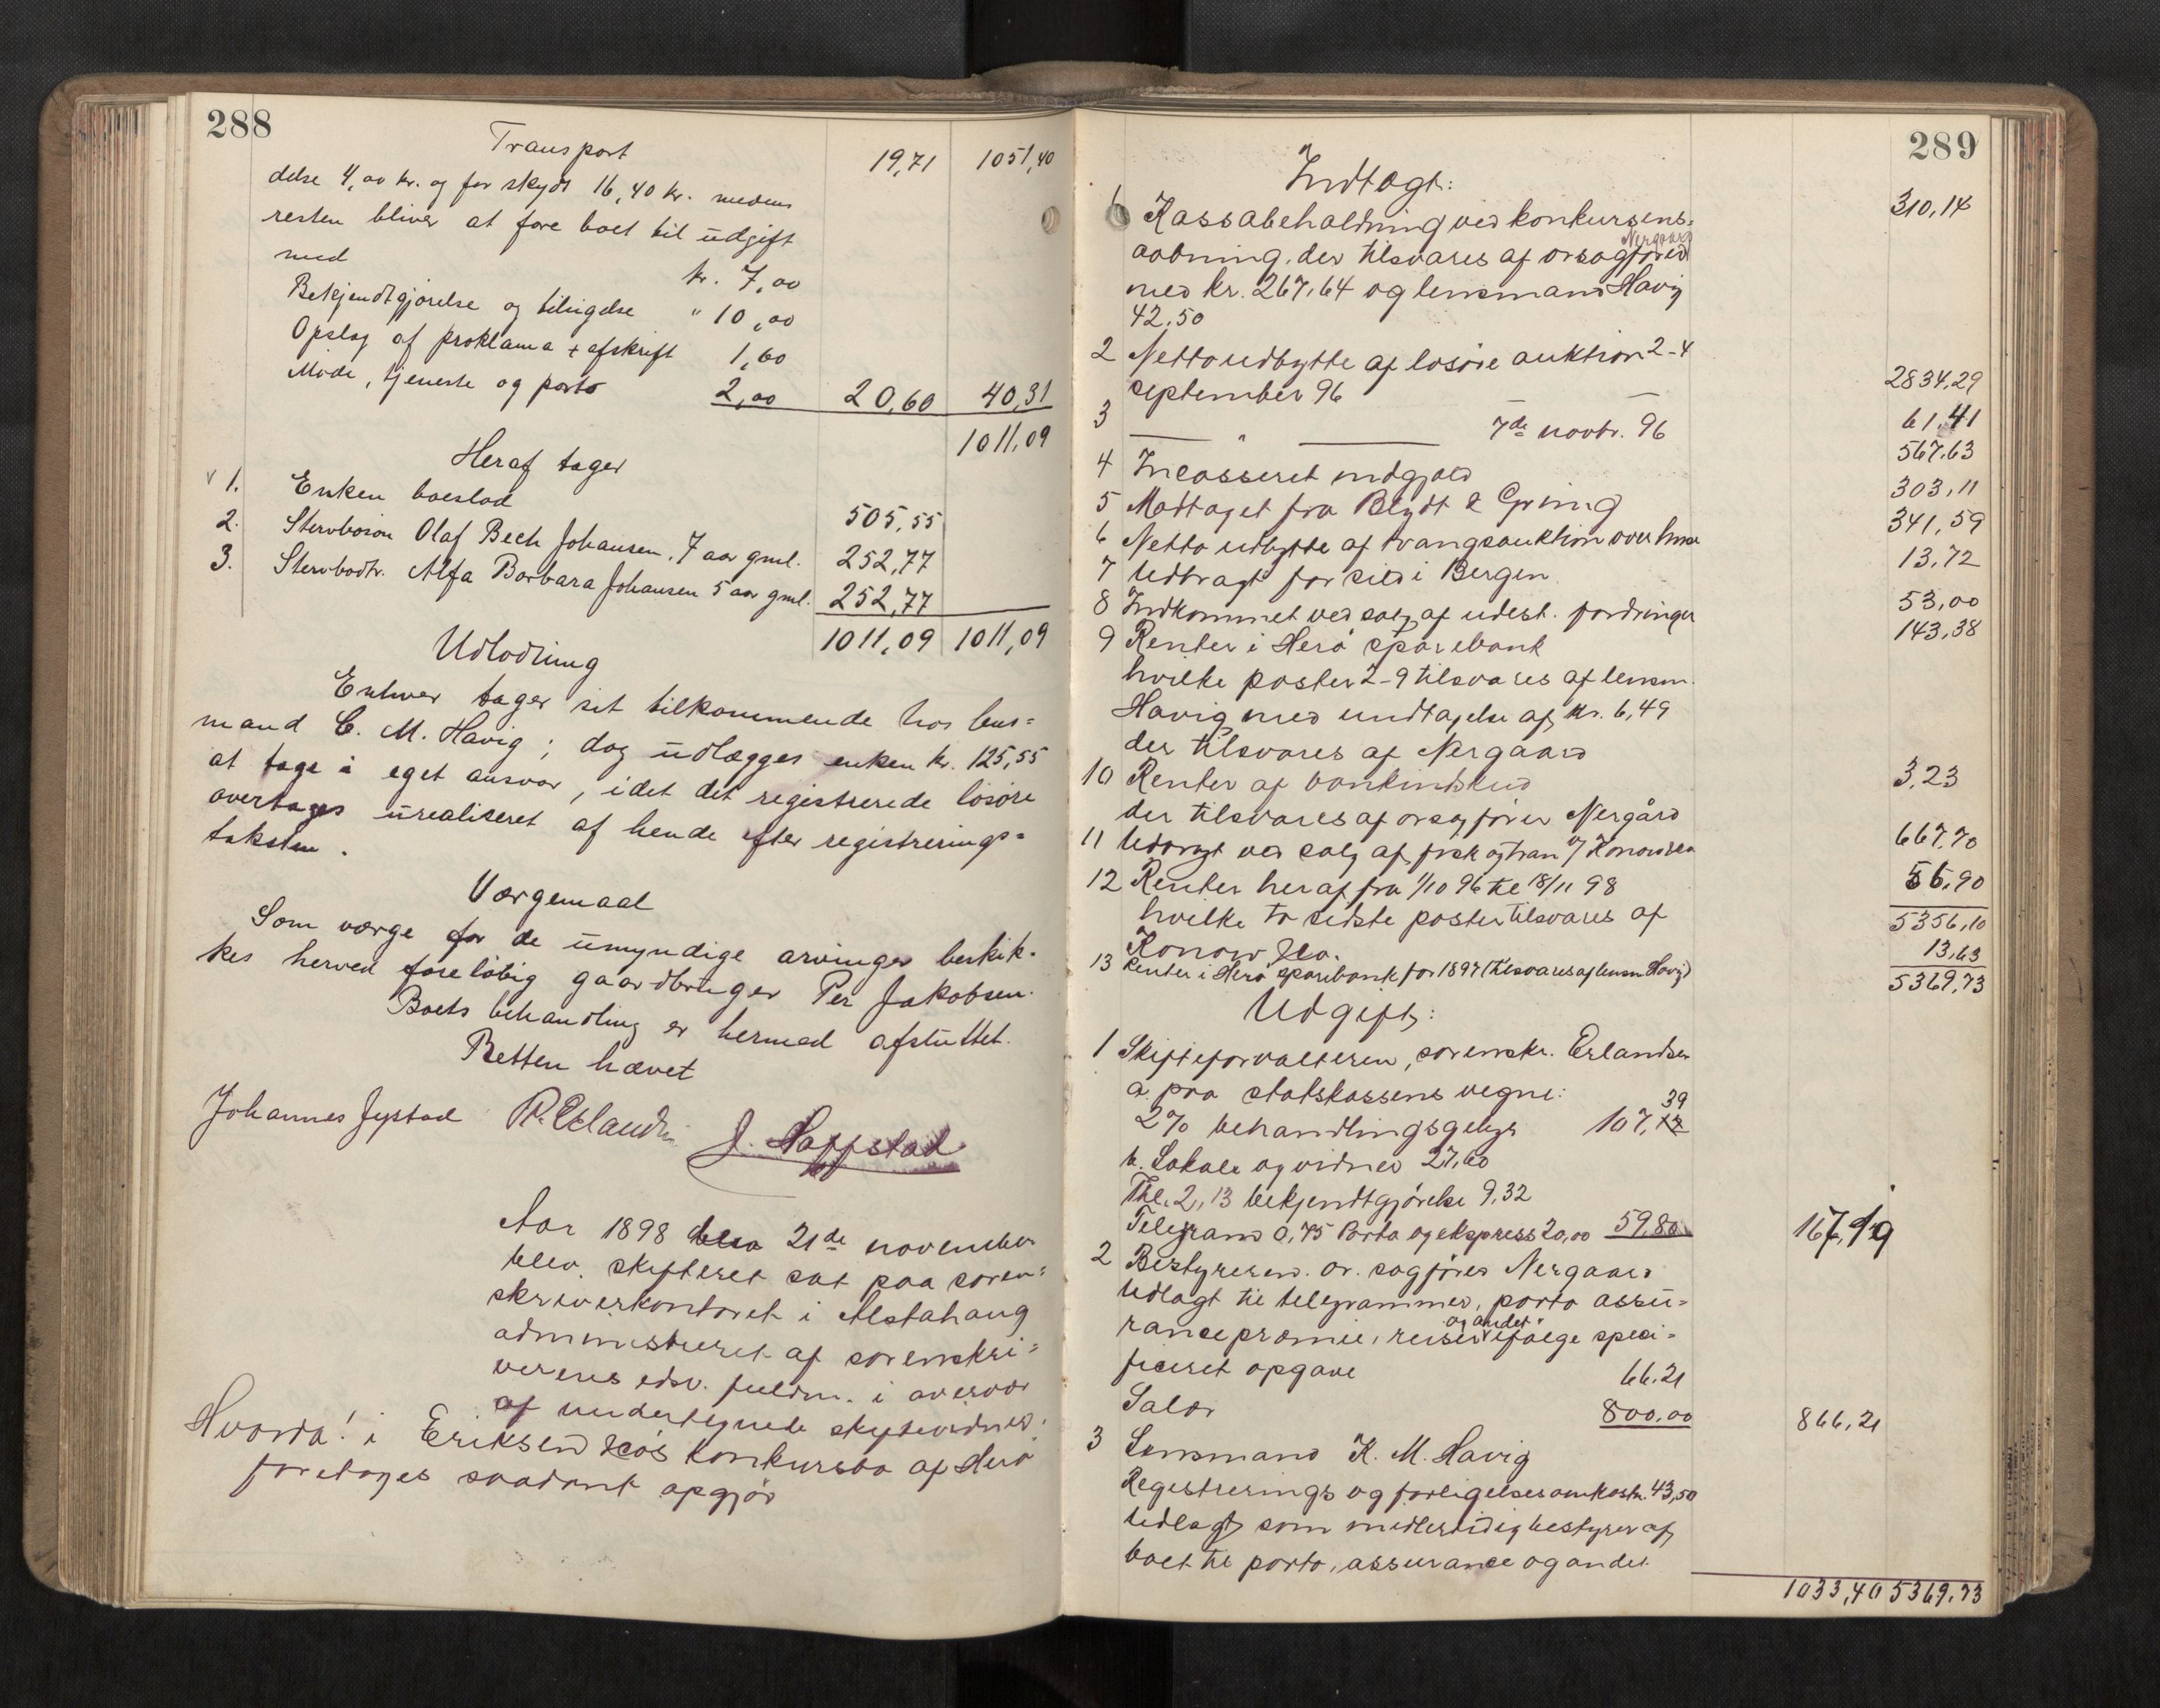 288
Transport 19,71 1051,40
delse 4,00 kr. og for skyds 16,40 kr. medens
resten bliver at føre boet til udgift
med kr. 7,00
Bekjendtgjørelse og tilsigelse " 10,00
Opslag af proklama + afskrift 1,60
Møde, tjeneste og porto 2,00 20,60 40,31
1011,09
Heraf tager
1. Enken boeslod 505,55
2. Stervbosøn Olaf Bech Johansen, 7 aar gml. 252,77
3. Stervbodtr. Alfa Barbara Johansen 5 aar gml. 252,77
1011,09 1011,09
Udlodning
Enhver tager sit tilkommende hos lens=
mand C. M. Havig; dog udlægges enken kr. 125,55
at tage i eget ansvar, idet det registrerede løsøre
overtages urealiseret af hende efter registrerings=
taksten.
Værgemaal
Som værge for de umyndige arvinger beskik=
kes herved foreløbig gaardbruger Per Jakobsen.
Boets behandling er hermed afsluttet.
Retten hævet
Johannes Jystad J. Sappstad
Aar 1898 den 21de november
blev skifteret sat paa soren=
skriverkontoret i Alstahaug
administreret af sorenskri=
verens edsv. fuldm. i overvær
af undertegnede skiftevidner.
Hvorda! i Eriksen & Co's konkursbo af Herø
foretages saadant opgjør
289
Indtægt:
1 Kassabeholdning ved konkursens= 310,14
Nergaard
aabning, der tilsvares af orsagfører
med kr. 267,64 og lensmand Havig
42,50
2 Nettoudbytte af løsøre auktion 2-4
september 96 2834,29
3 — " — 7de novbr. 96 61,41
4 Incasseret indgjæld 567,63
5 Modtaget fra Blydt & Grung 303,11
6 Netto udbytte af tvangsauktion over huse 341,59
7 Udbragt for sild i Bergen 13,72
8 Indkommet ved salg af udest. fordringer 53,00
9 Renter i Herø sparebank 143,38
hvilke poster 2-9 tilsvares af lensm.
Havig med undtagelse af kr. 6,49
der tilsvares af Nergaard
10 Renter af bankindskud 3,23
der tilsvares af orsagfører Nergård
11 Udbragt ved salg af fisk og tran v/ Konow & Co 667,70
12 Renter heraf fra 1/10 96 til 18/11 98 56,90
hvilke to sidste poster tilsvares af 5356,10
Konow & Co.
13 Renter i Herø sparebank for 1897 (tilsvares af lensm Havig) 13,63
5369,73
Udgift:
1 Skifteforvalteren, sorenskr. Erlandsen
a. paa statskassens vegne:
39
2% behandlingsgebyr 107,12
b. Lokale og vidner 27,60
Thl. 2,13 bekjendtgjørelse 9,32
Telegram 0,75 Porto og ekspress 20,00 59,80 167,19
2 Bestyreren or. sagfører Nergaard
Udlagt til telegrammer, porto assu=
og andet
rancepræmie, reiser ifølge speci=
ficeret opgave 66.21
Salær 800,00 866,21
3 Lensmand K. M. Havig
Registrerings og forligelsesomkostn. 43,50
Udlagt som midlertidig bestyrer af
boet til porto, assurance og andet
1033,40 5369,73